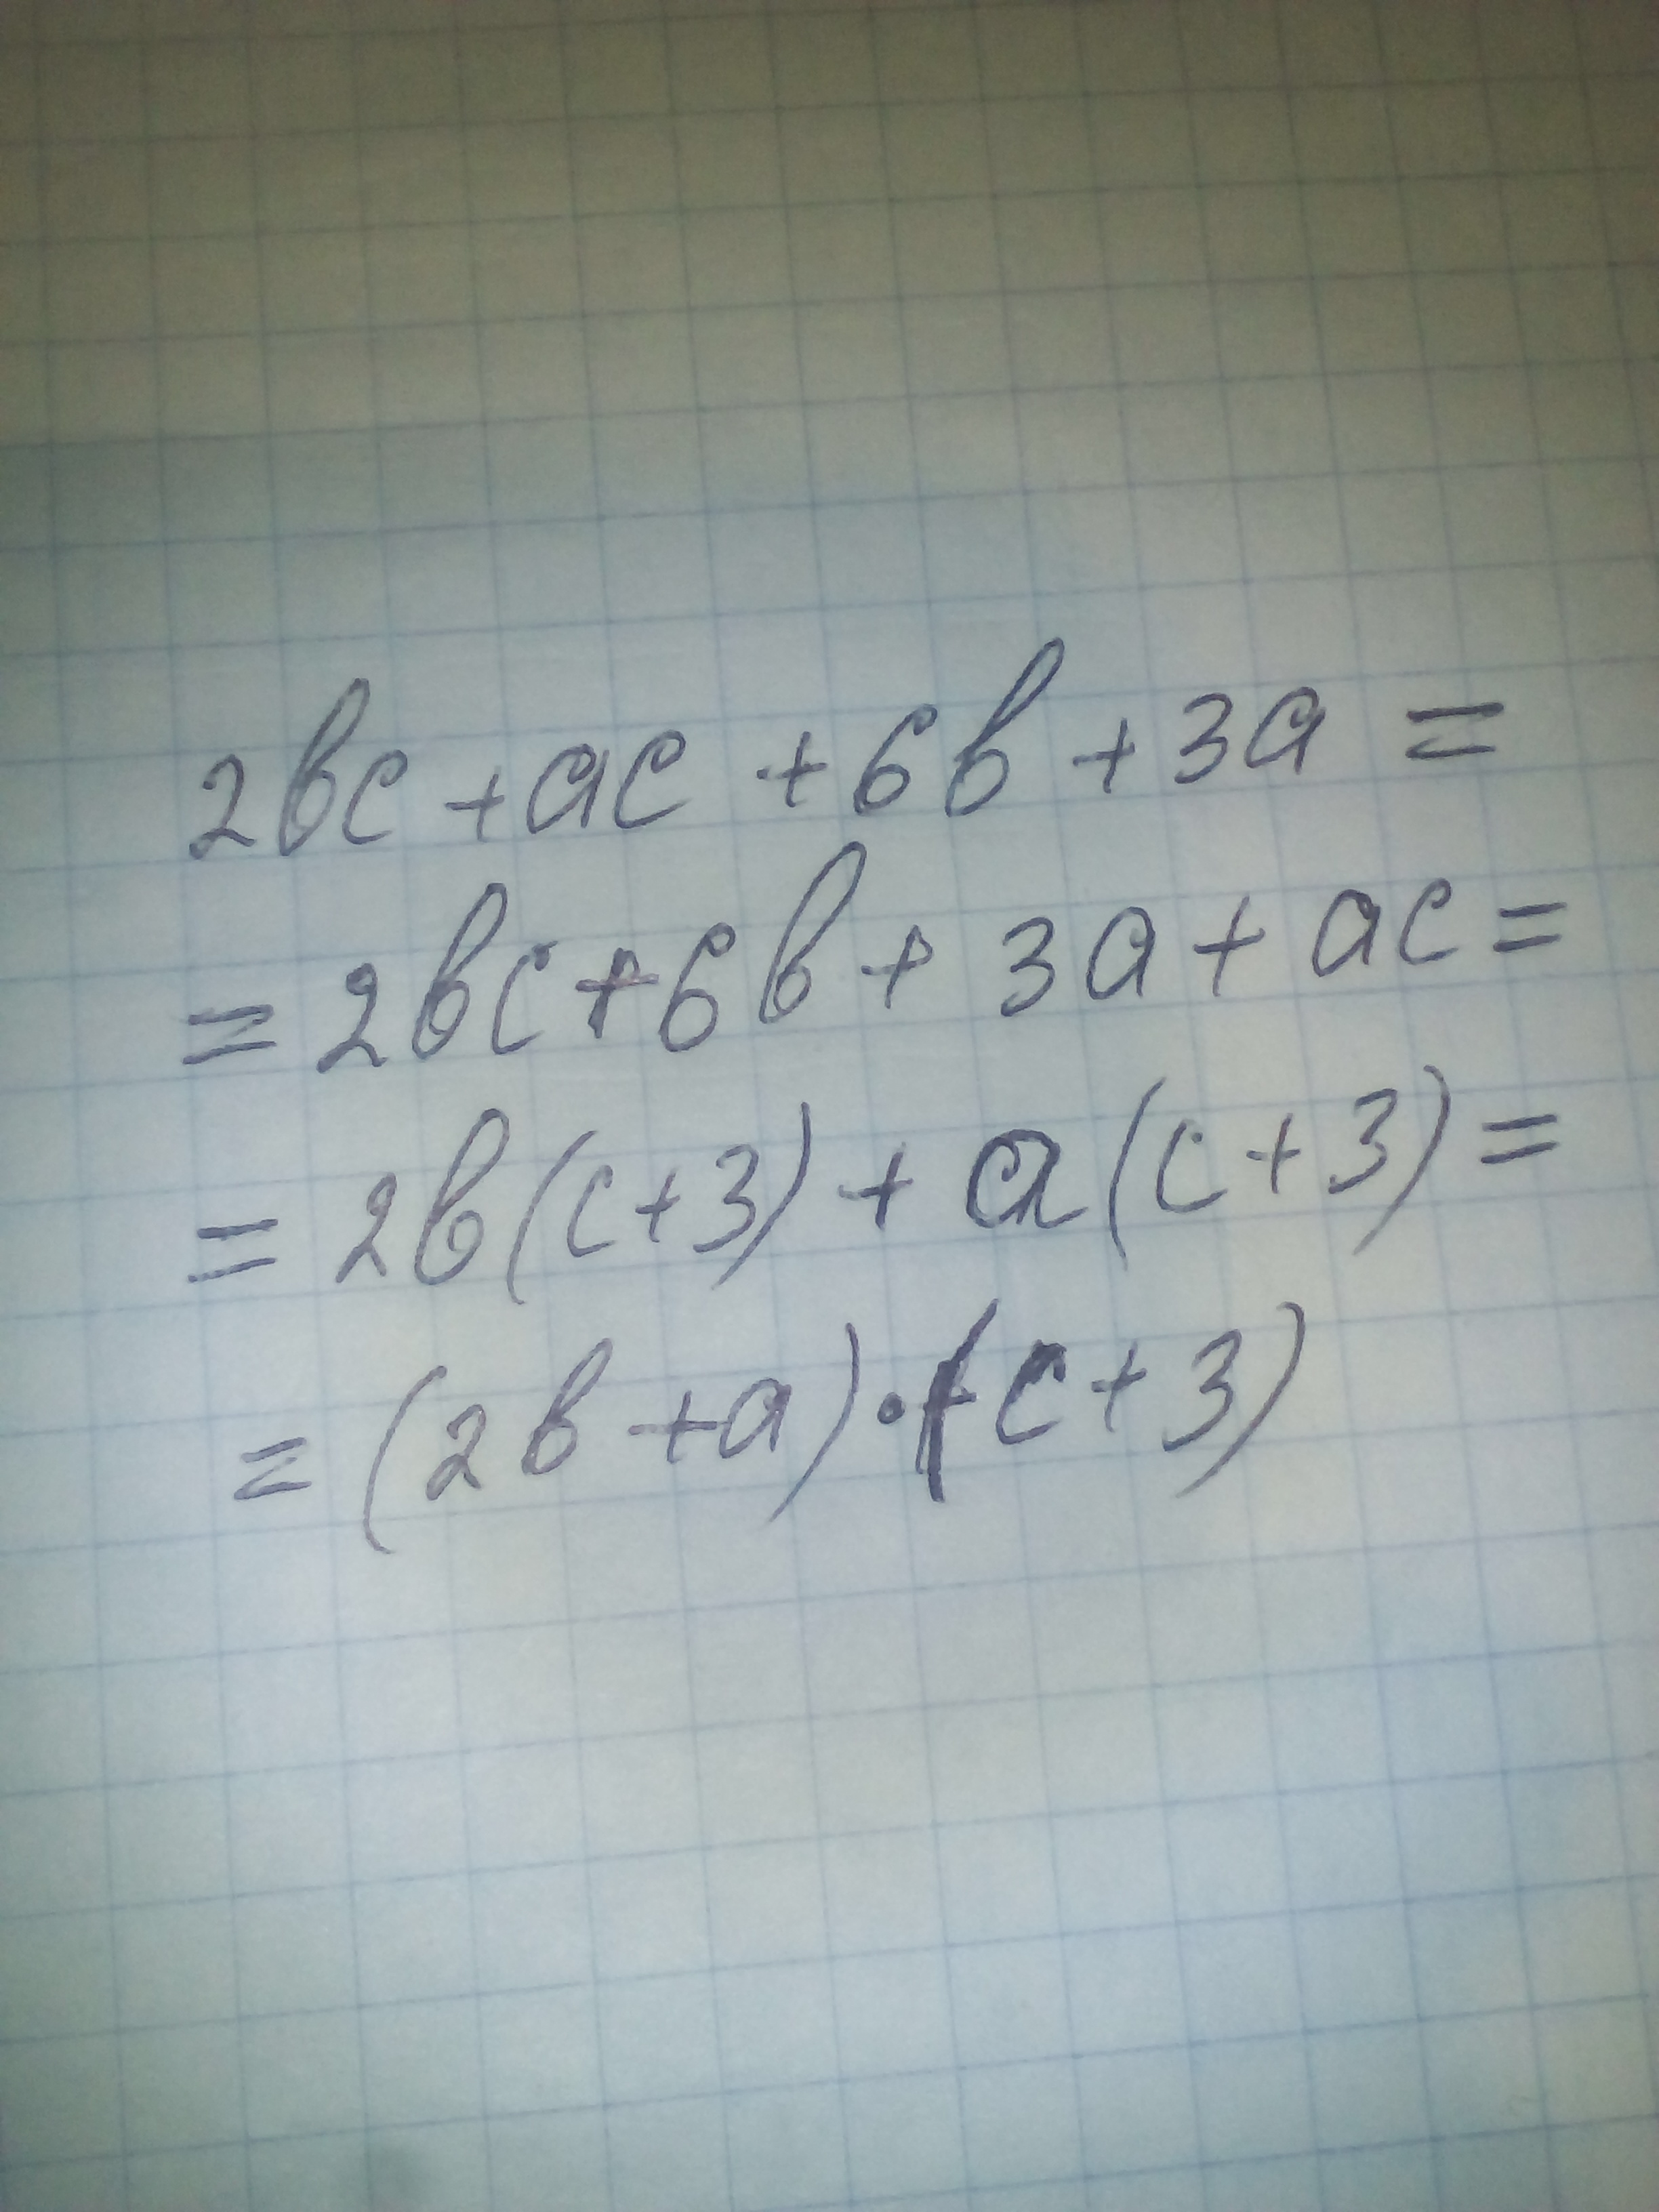 2bc + ac + 6b + 3a =
= 2bc + 6b + 3a + ac =
= 2b(c+3) + a(c+3) =
= (2b+a)·(c+3)